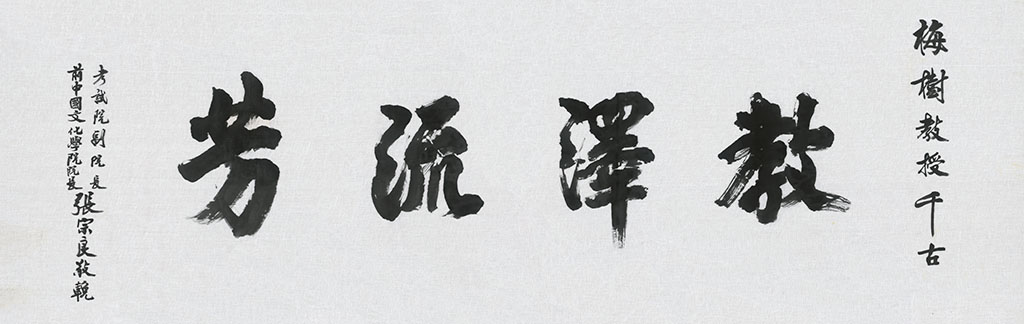 梅樹教授千古
教澤流芳
考試院副院長
前中國文化學院院長
張宗良敬輓